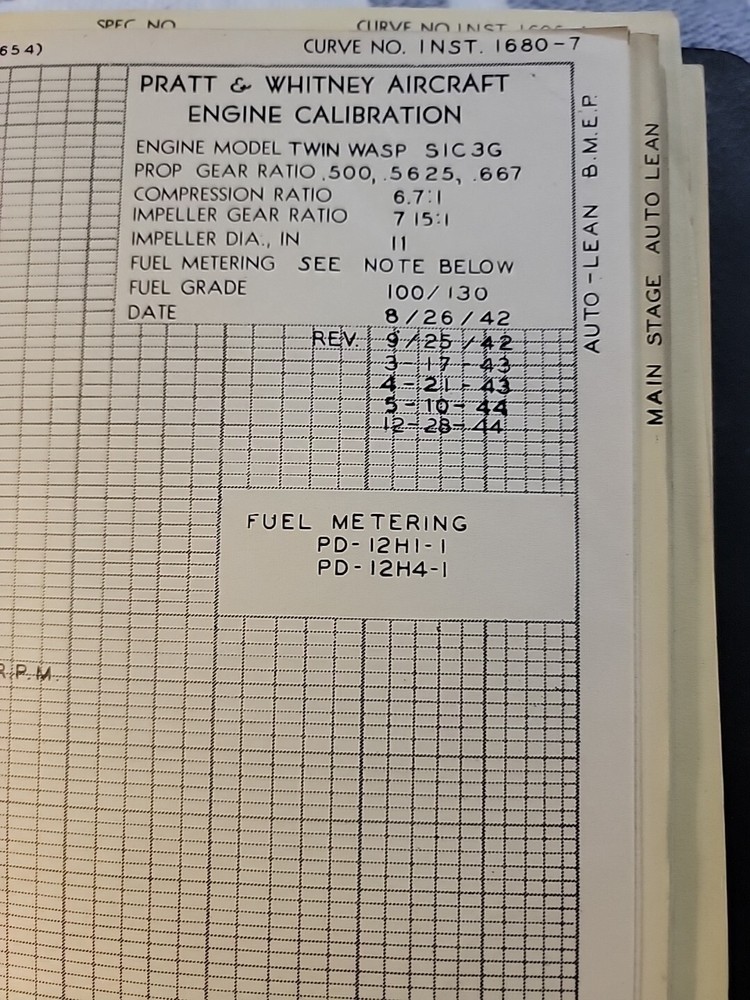 SPEC NO
CURVE NO INST
654)
CURVE NO. INST. 1680-7
PRATT & WHITNEY AIRCRAFT
ENGINE CALIBRATION
ENGINE MODEL TWIN WASP S1C3G
PROP GEAR RATIO .500, .5625, .667
COMPRESSION RATIO 6.7:1
IMPELLER GEAR RATIO 7 15:1
IMPELLER DIA., IN 11
FUEL METERING SEE NOTE BELOW
FUEL GRADE 100/130
DATE 8/26/42
REV. 9/25/42
3-17-43
4-21-43
5-10-44
12-28-44
FUEL METERING
PD-12H1-1
PD-12H4-1
R.P.M.
AUTO-LEAN B.M.E.P.
MAIN STAGE AUTO LEAN